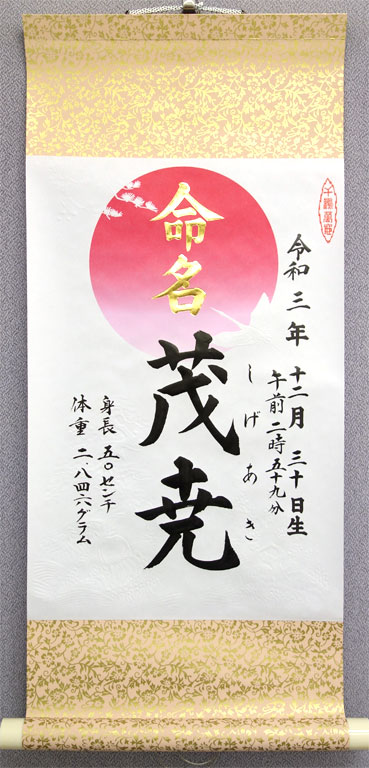 令和三年 十二月三十日生
午前二時五十九分
命名
茂尭
しげあき
身長 五〇センチ
体重 二、八四六グラム